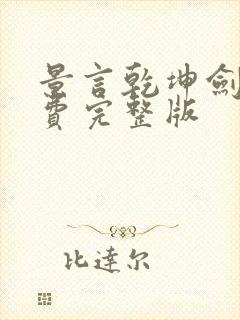 景言乾坤劍
費完整版
比達尔